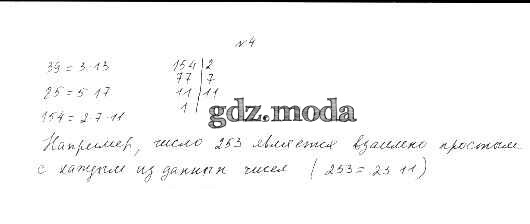 №4
39 = 3·13 154 | 2
77 | 7
25 = 5·17 11 | 11
1
154 = 2·7·11
gdz.moda
Например, число 253 является взаимно простым
с каждым из данных чисел (253 = 23·11)